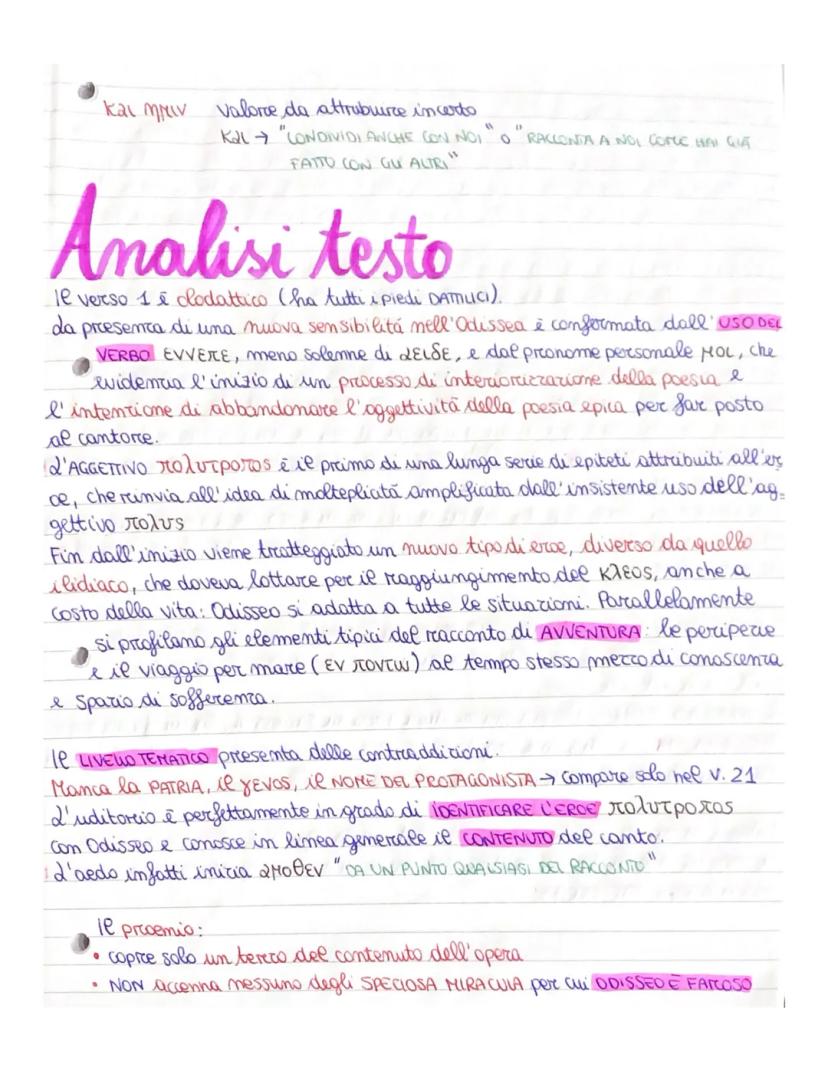 και ημιν valore da attribuire incerto
και → "CONDIVIDI ANCHE CON NOI" o "RACCONTA A NOI COME HAI GIÀ
FATTO CON GLI ALTRI"
Analisi testo
Il verso 1 è olodattico (ha tutti i piedi DATTILICI).
La presenza di una nuova sensibilità nell'Odissea è confermata dall'USO DEL
VERBO εννεπε, meno solenne di αειδε, e dal pronome personale μοι, che
evidenzia l'inizio di un processo di interiorizzazione della poesia e
l'intenzione di abbandonare l'oggettività della poesia epica per far posto
al cantore.
L'AGGETTIVO πολυτροπος è il primo di una lunga serie di epiteti attribuiti all'er
oe, che rinvia all'idea di molteplicità amplificata dall'insistente uso dell'ag=
gettivo πολυς
Fin dall'inizio viene tratteggiato un nuovo tipo di eroe, diverso da quello
ilidiaco, che doveva lottare per il raggiungimento del κλεος, anche a
costo della vita: Odisseo si adatta a tutte le situazioni. Parallelamente
si profilano gli elementi tipici del racconto di AVVENTURA: le peripezie
e il viaggio per mare (εν ποντω) al tempo stesso mezzo di conoscenza
e spazio di sofferenza.
Il LIVELLO TEMATICO presenta delle contraddizioni.
Manca la PATRIA, il γενος, il NOME DEL PROTAGONISTA → compare solo nel v. 21
L'uditorio è perfettamente in grado di IDENTIFICARE L'EROE πολυτροπος
con Odisseo e conosce in linea generale il CONTENUTO del canto.
L'aedo infatti inizia αμοθεν "DA UN PUNTO QUALSIASI DEL RACCONTO"
Il proemio:
• copre solo un terzo del contenuto dell'opera
• NON accenna nessuno degli SPECIOSA MIRACULA per cui ODISSEO È FAMOSO